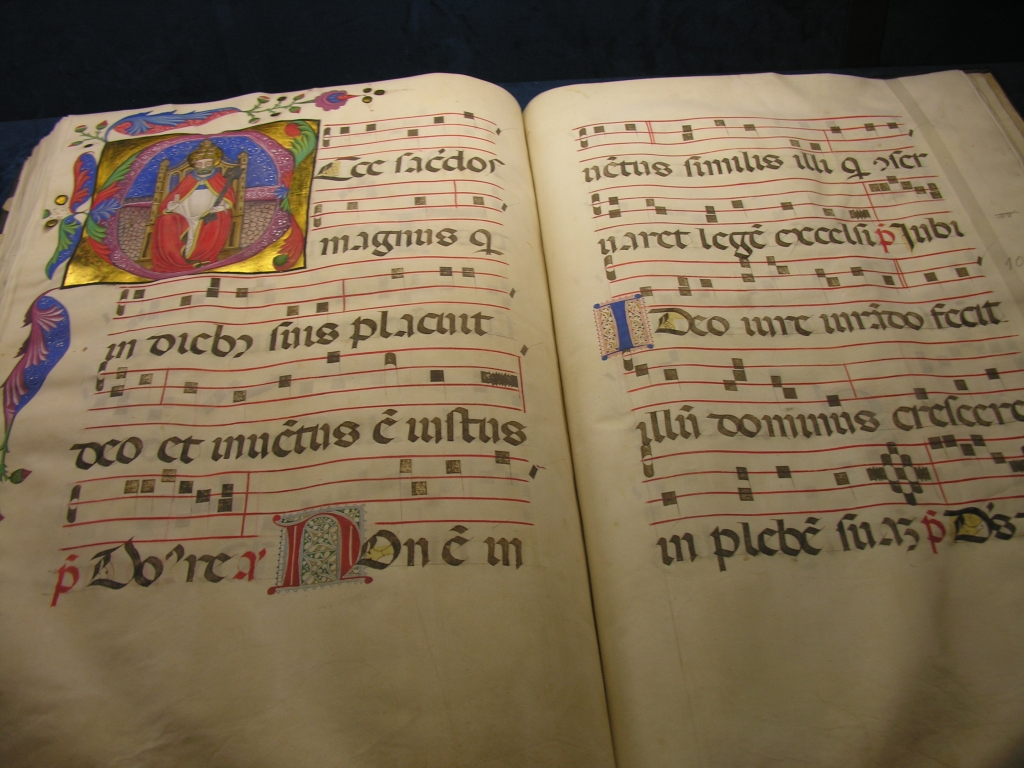 Ecce sac̄dos
magnus q̄
in dieb⁹ suis placuit
deo et inuētus ē iustus
p̄ Do'ire a' Non ē in
uētus similis illi q̄ ↄser
uaret legē excelsi p̄ Jubi
Ideo iure iurādo fecit
illū dominus crescere
in plebē suaꝫ p̄ D's